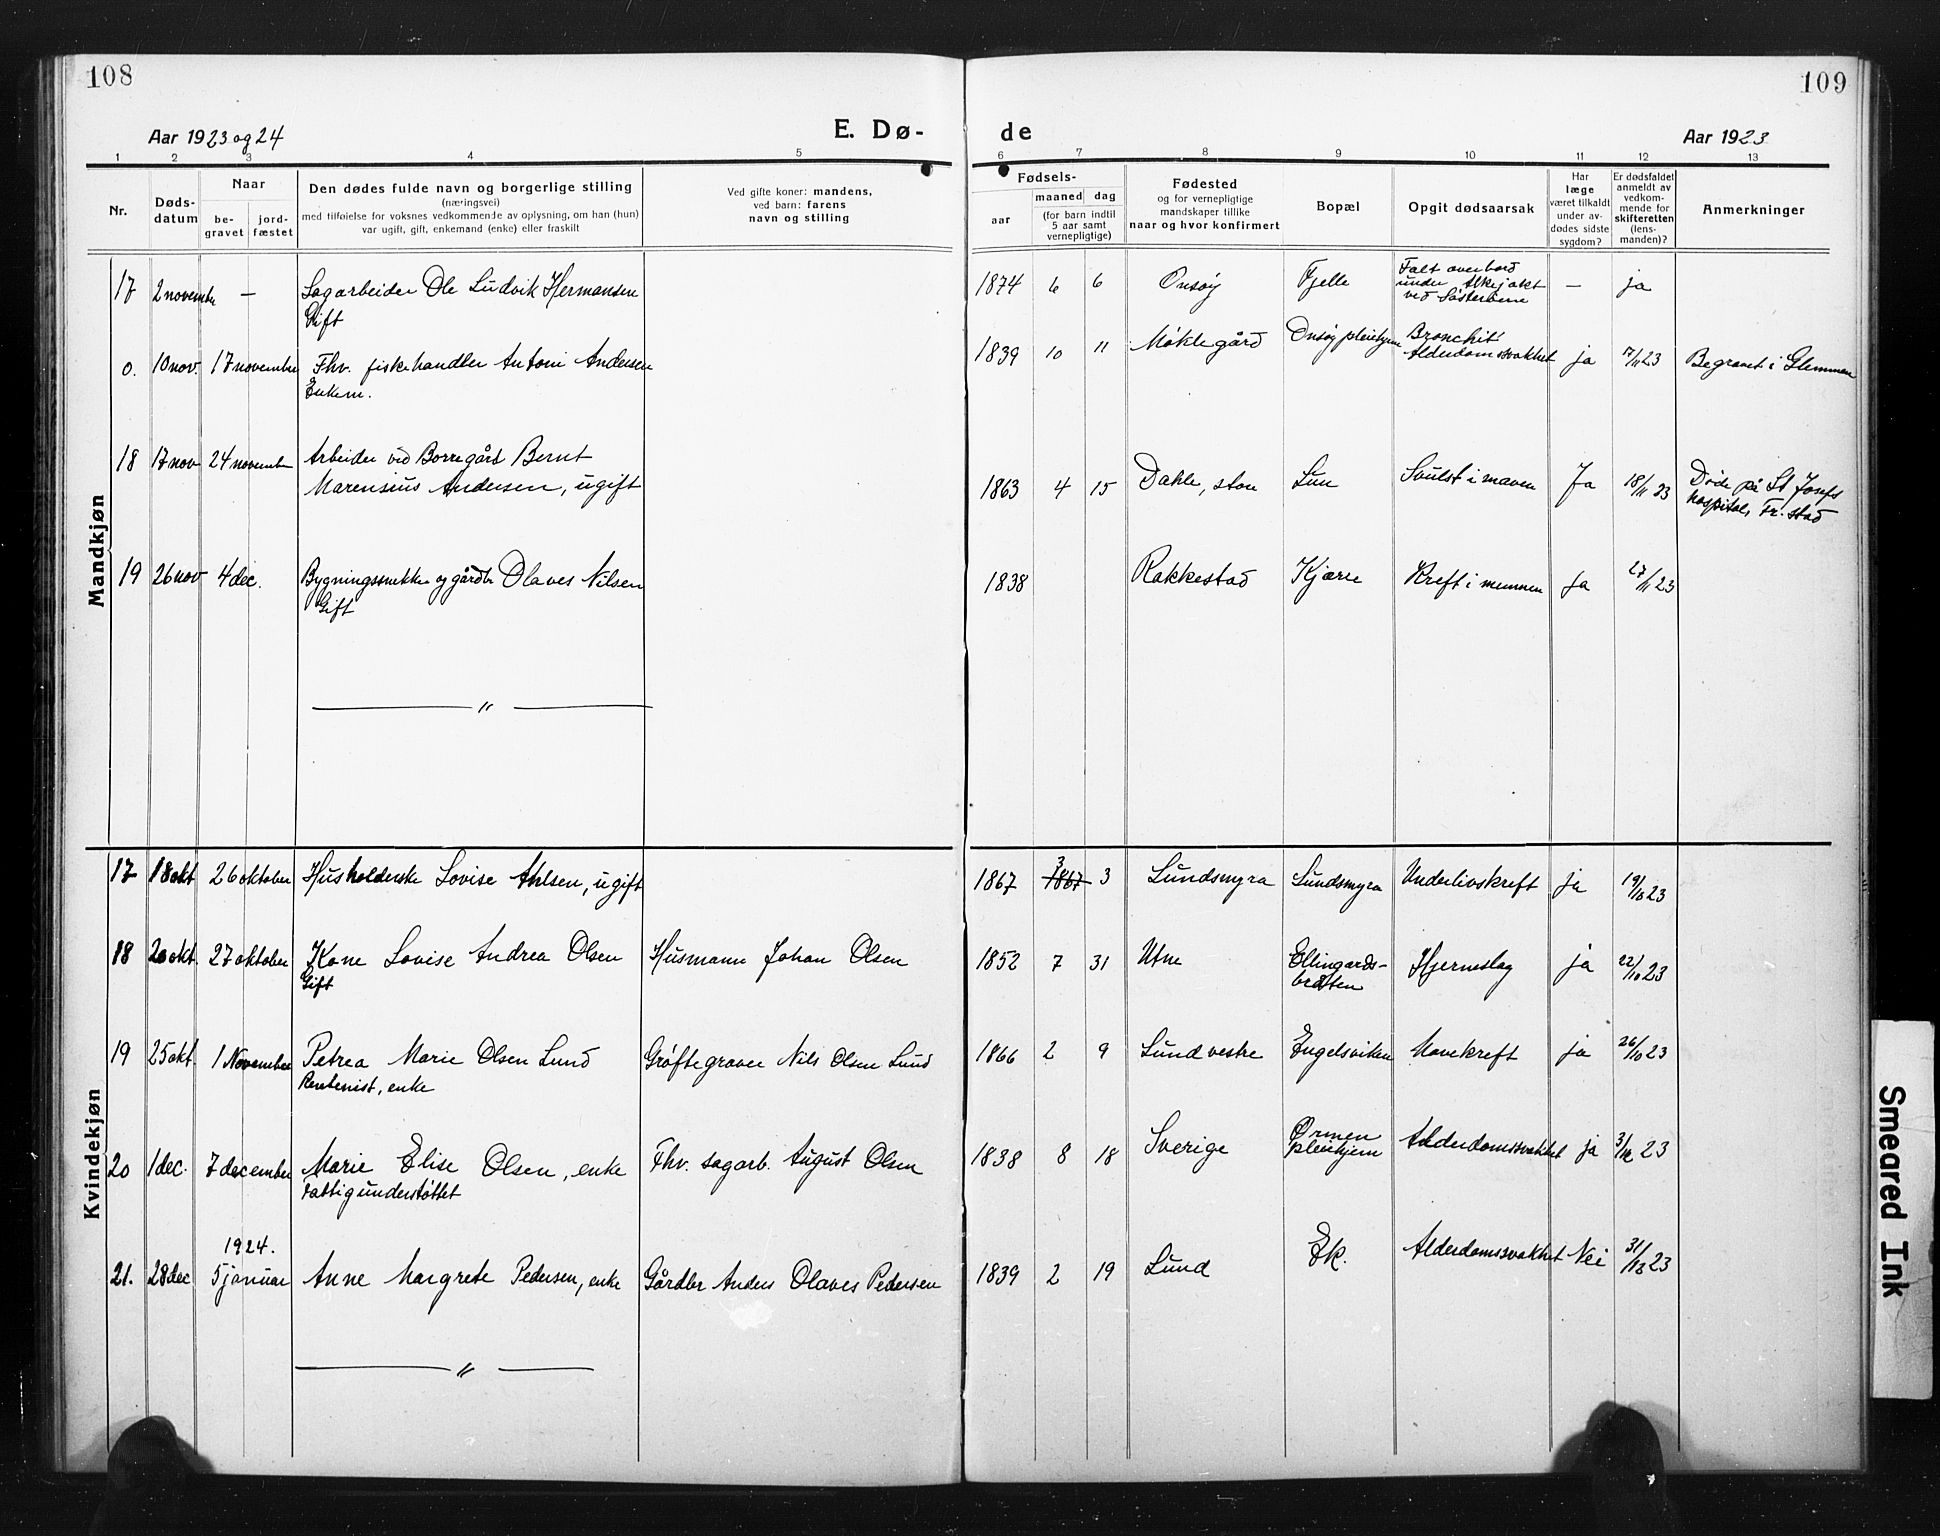 108
109
Aar 1923 og 24
E. Dø-
de
Aar 1923
1 2 3 4 5 6 7 8 9 10 11 12 13
Nr.
Døds-
datum
Naar
be-
gravet
jord-
fæstet
Den dødes fulde navn og borgerlige stilling
(næringsvei)
med tilføielse for voksnes vedkommende av oplysning, om han (hun)
var ugift, gift, enkemand (enke) eller fraskilt
Ved gifte koner: mandens,
ved barn: farens
navn og stilling
Fødsels-
aar
maaned dag
(for barn indtil
5 aar samt
vernepligtige)
Fødested
og for vernepligtige
mandskaper tillike
naar og hvor konfirmert
Bopæl
Opgit dødsaarsak
Har
læge
været tilkaldt
under av-
dødes sidste
sygdom?
Er dødsfaldet
anmeldt av
vedkom-
mende for
skifteretten
(lens-
manden)?
Anmerkninger
Mandkjøn
17 2 novembe — Sagarbeider Ole Ludvik Hermansen
Gift
1874 6 6 Onsøy Fjelle
Falt overbord
under Alkejakt
ved Søsterøene
— ja
0. 10 nov. 17 november Fhv. fiskehandler Antoni Andersen
Enkem.
1839 10 11 Møklegård Onsøy pleiehjem
Bronchit
Alderdomssvakhet
ja 17/11 23 Begravet i Glemmen
18 17 nov 24 november Arbeider ved Borregård Bernt
Marensius Andersen, ugift
1863 4 15 Dahle, store Lun Svulst i maven Ja 18/11 23
Døde på St Josefs
hospital, Fr.stad
19 26 nov 4 dec. Bygningssnekker og gårdbr Olaves Nilsen
Gift
1838 Rakkestad Kjærre Kreft i munnen Ja 27/11 23
— " —
Kvindekjøn
17 18 okt 26 oktober Husholderske Lovise Ahlsen, ugift
1867 1867 3 3 Lundsmyra Lundsmyra Underlivskreft ja 19/10 23
18 20 okt. 27 oktober Kone Lovise Andrea Olsen
Gift
Husmann Johan Olsen
1852 7 31 Utne
Ellingards-
bråten
Hjerneslag ja 22/10 23
19 25 okt. 1 November Petrea Marie Olsen Lund
Rentenist, enke
Grøftegraver Nils Olsen Lund
1866 2 9 Lund vestre Engelsviken Mavekreft ja 26/10 23
20 1 dec. 7 december Marie Elise Olsen, enke
fattigunderstøttet
Fhv. sagarb. August Olsen
1838 8 18 Sverige
Ørmen
pleiehjem
Alderdomssvakhet ja 3/12 23
1924.
21. 28 dec 5 januar Anne Margrete Pedersen, enke
Gårdbr Anders Olaves Pedersen
1839 2 19 Lund Ek. Alderdomssvakhet Nei 31/12 23
— " —
Smeared Ink